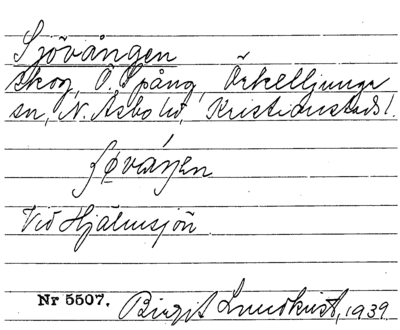 Sjövången
skog, Ö. Spång, Örkelljunga
sn, N. Åsbo hd, Kristianstads l.
Vid Hjälmsjön
Nr 5507. Birgit Lundkvist, 1939